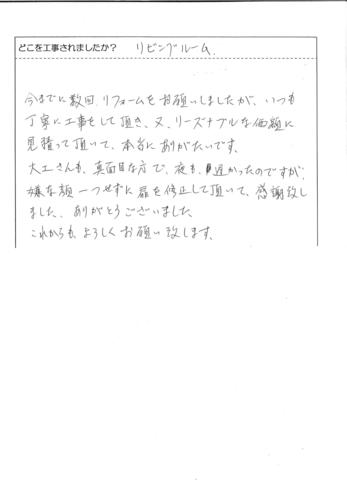 どこを工事されましたか？ リビングルーム.
今までに数回、リフォームをお願いしましたが、いつも
丁寧に工事をして頂き、又、リーズナブルな価額に
見積って頂いて、本当にありがたいです。
大工さんも、真面目な方で、夜も、遅かったのですが、
嫌な顔一つせずに扉を修正して頂いて、感謝致し
ました。ありがとうございました
これからも、よろしくお願い致します。